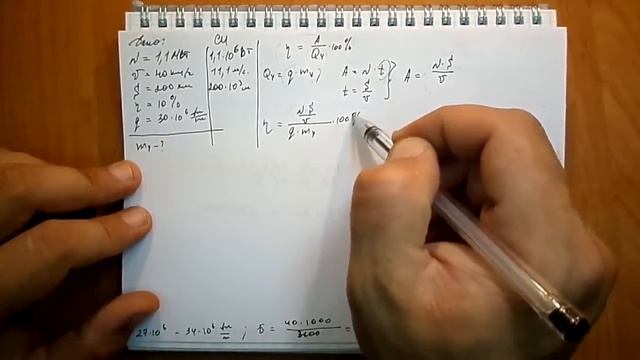 Дано:
N = 1,1 МВт
v = 40 км/ч
S = 200 км
η = 10%
q = 30·10⁶ Дж/кг
mу - ?
СИ
1,1·10⁶ Вт
11,1 м/с
200·10³ м
η = A/Qу ·100%
Qу = q·mу; A = N·t
t = S/v
A = N·S/v
η = (N·S/v)/(q·mу) ·100%
27·10⁶ - 34·10⁶
; v = 40·1000/3600 =